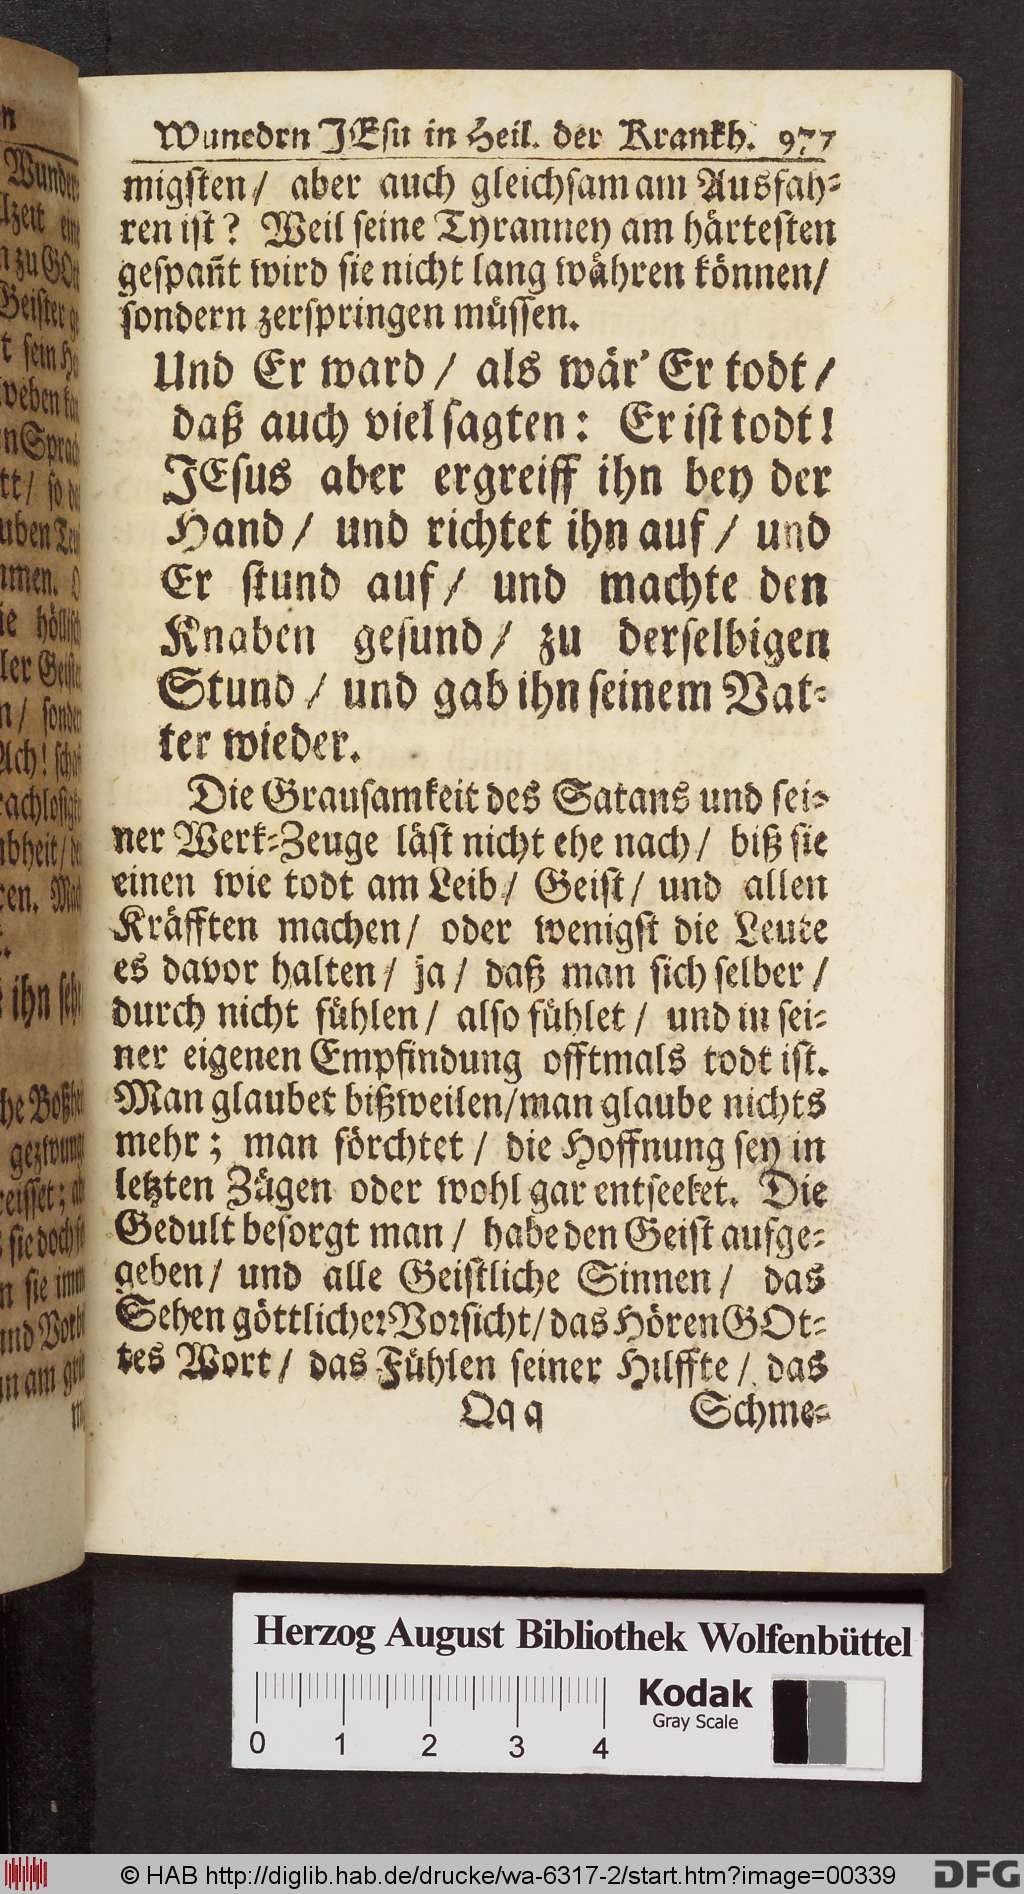 Wunedrn JEsu in Heil. der Krankh. 977
migsten/ aber auch gleichsam am Ausfah-
ren ist? Weil seine Tyranney am härtesten
gespañt wird sie nicht lang währen können/
sondern zerspringen müssen.
Und Er ward / als wär' Er todt /
daß auch viel sagten: Er ist todt!
JEsus aber ergreiff ihn bey der
Hand / und richtet ihn auf / und
Er stund auf / und machte den
Knaben gesund / zu derselbigen
Stund / und gab ihn seinem Vat-
ter wieder.
Die Grausamkeit des Satans und sei-
ner Werk-Zeuge läst nicht ehe nach / biß sie
einen wie todt am Leib / Geist / und allen
Kräfften machen / oder wenigst die Leute
es davor halten / ja / daß man sich selber /
durch nicht fühlen / also fühlet / und in sei-
ner eigenen Empfindung offtmals todt ist.
Man glaubet bißweilen/man glaube nichts
mehr; man förchtet / die Hoffnung sey in
letzten Zügen oder wohl gar entseelet. Die
Gedult besorgt man / habe den Geist aufge-
geben / und alle Geistliche Sinnen / das
Sehen göttlicher Vorsicht / das Hören GOt-
tes Wort / das Fühlen seiner Hilffte / das
Qqq Schme-
Wunder
eine
zu GOtt
sein
weben
tt / so
ihn
Ach!
ubheit /
gezwung
sie doch
n sie
und
n am
Herzog August Bibliothek Wolfenbüttel
0 1 2 3 4
Kodak
Gray Scale
© HAB http://diglib.hab.de/drucke/wa-6317-2/start.htm?image=00339
DFG